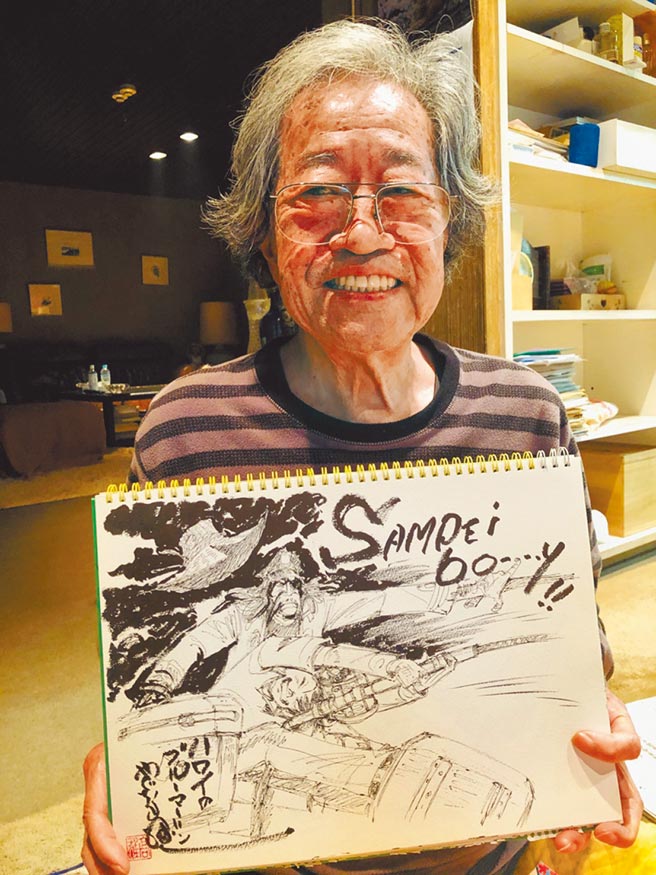 SAMPEi
bo…y!!
ハワイの
ブルーマーリン